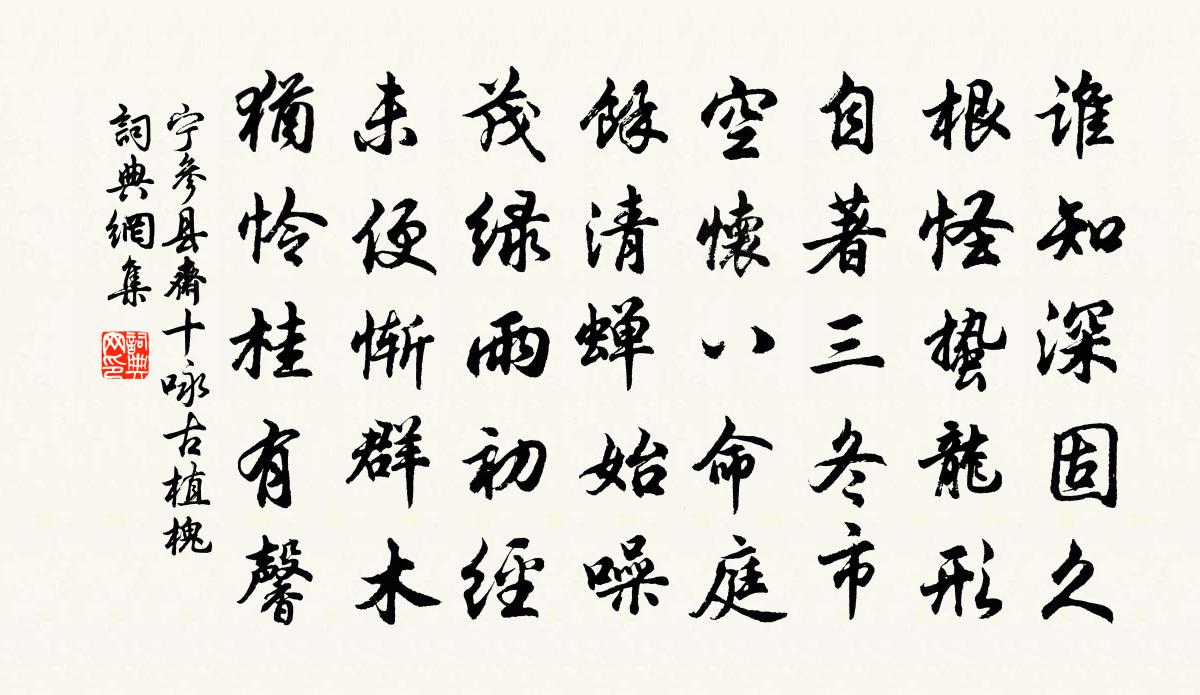 谁知深固久
根怪蛰龍形
自著三冬市
空懷八命庭
餘清蝉始噪
茂绿雨初經
未便惭群木
猶怜桂有馨
宁參县齋十咏古植槐
詞典網集
詞典网印